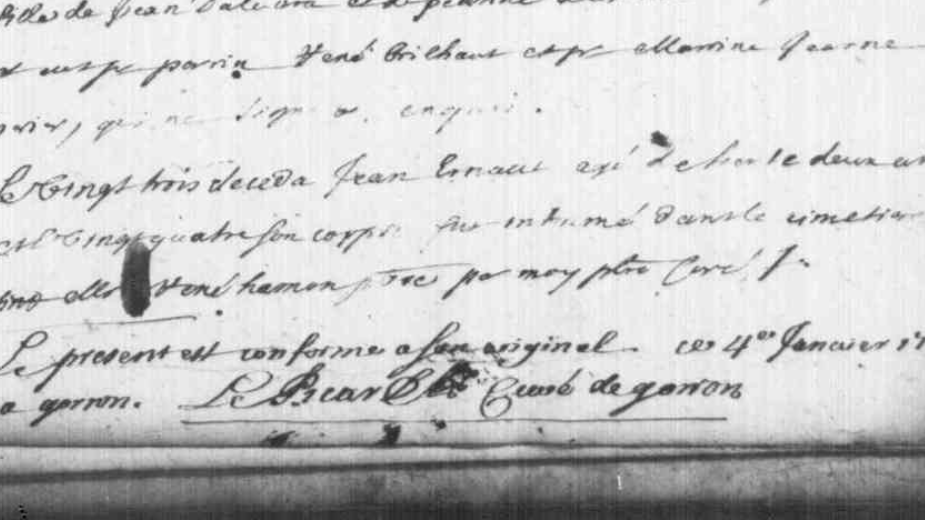 fille de Jean
et eut pr parrin René Brilhaut et pr Marrine Jeanne
qui ne signe enquis.
Le vingt trois deceda Jean Ernaut agé de trente deux an
et le vingt quatre son corps fut inhumé dans le cimetiere
René hamon par moy ptre Curé
Le present est conforme a son original ce 4er Janvier 17
a gorron. Le Picard Curé de gorron